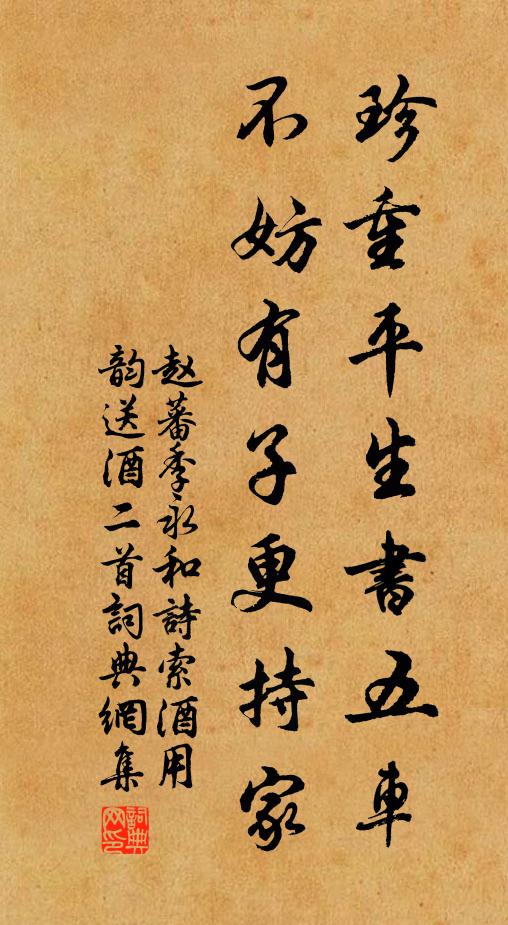 珍重平生書五車
不妨有子更持家
赵蕃季永和詩索酒用
韵送酒二首詞典網集
詞典网印